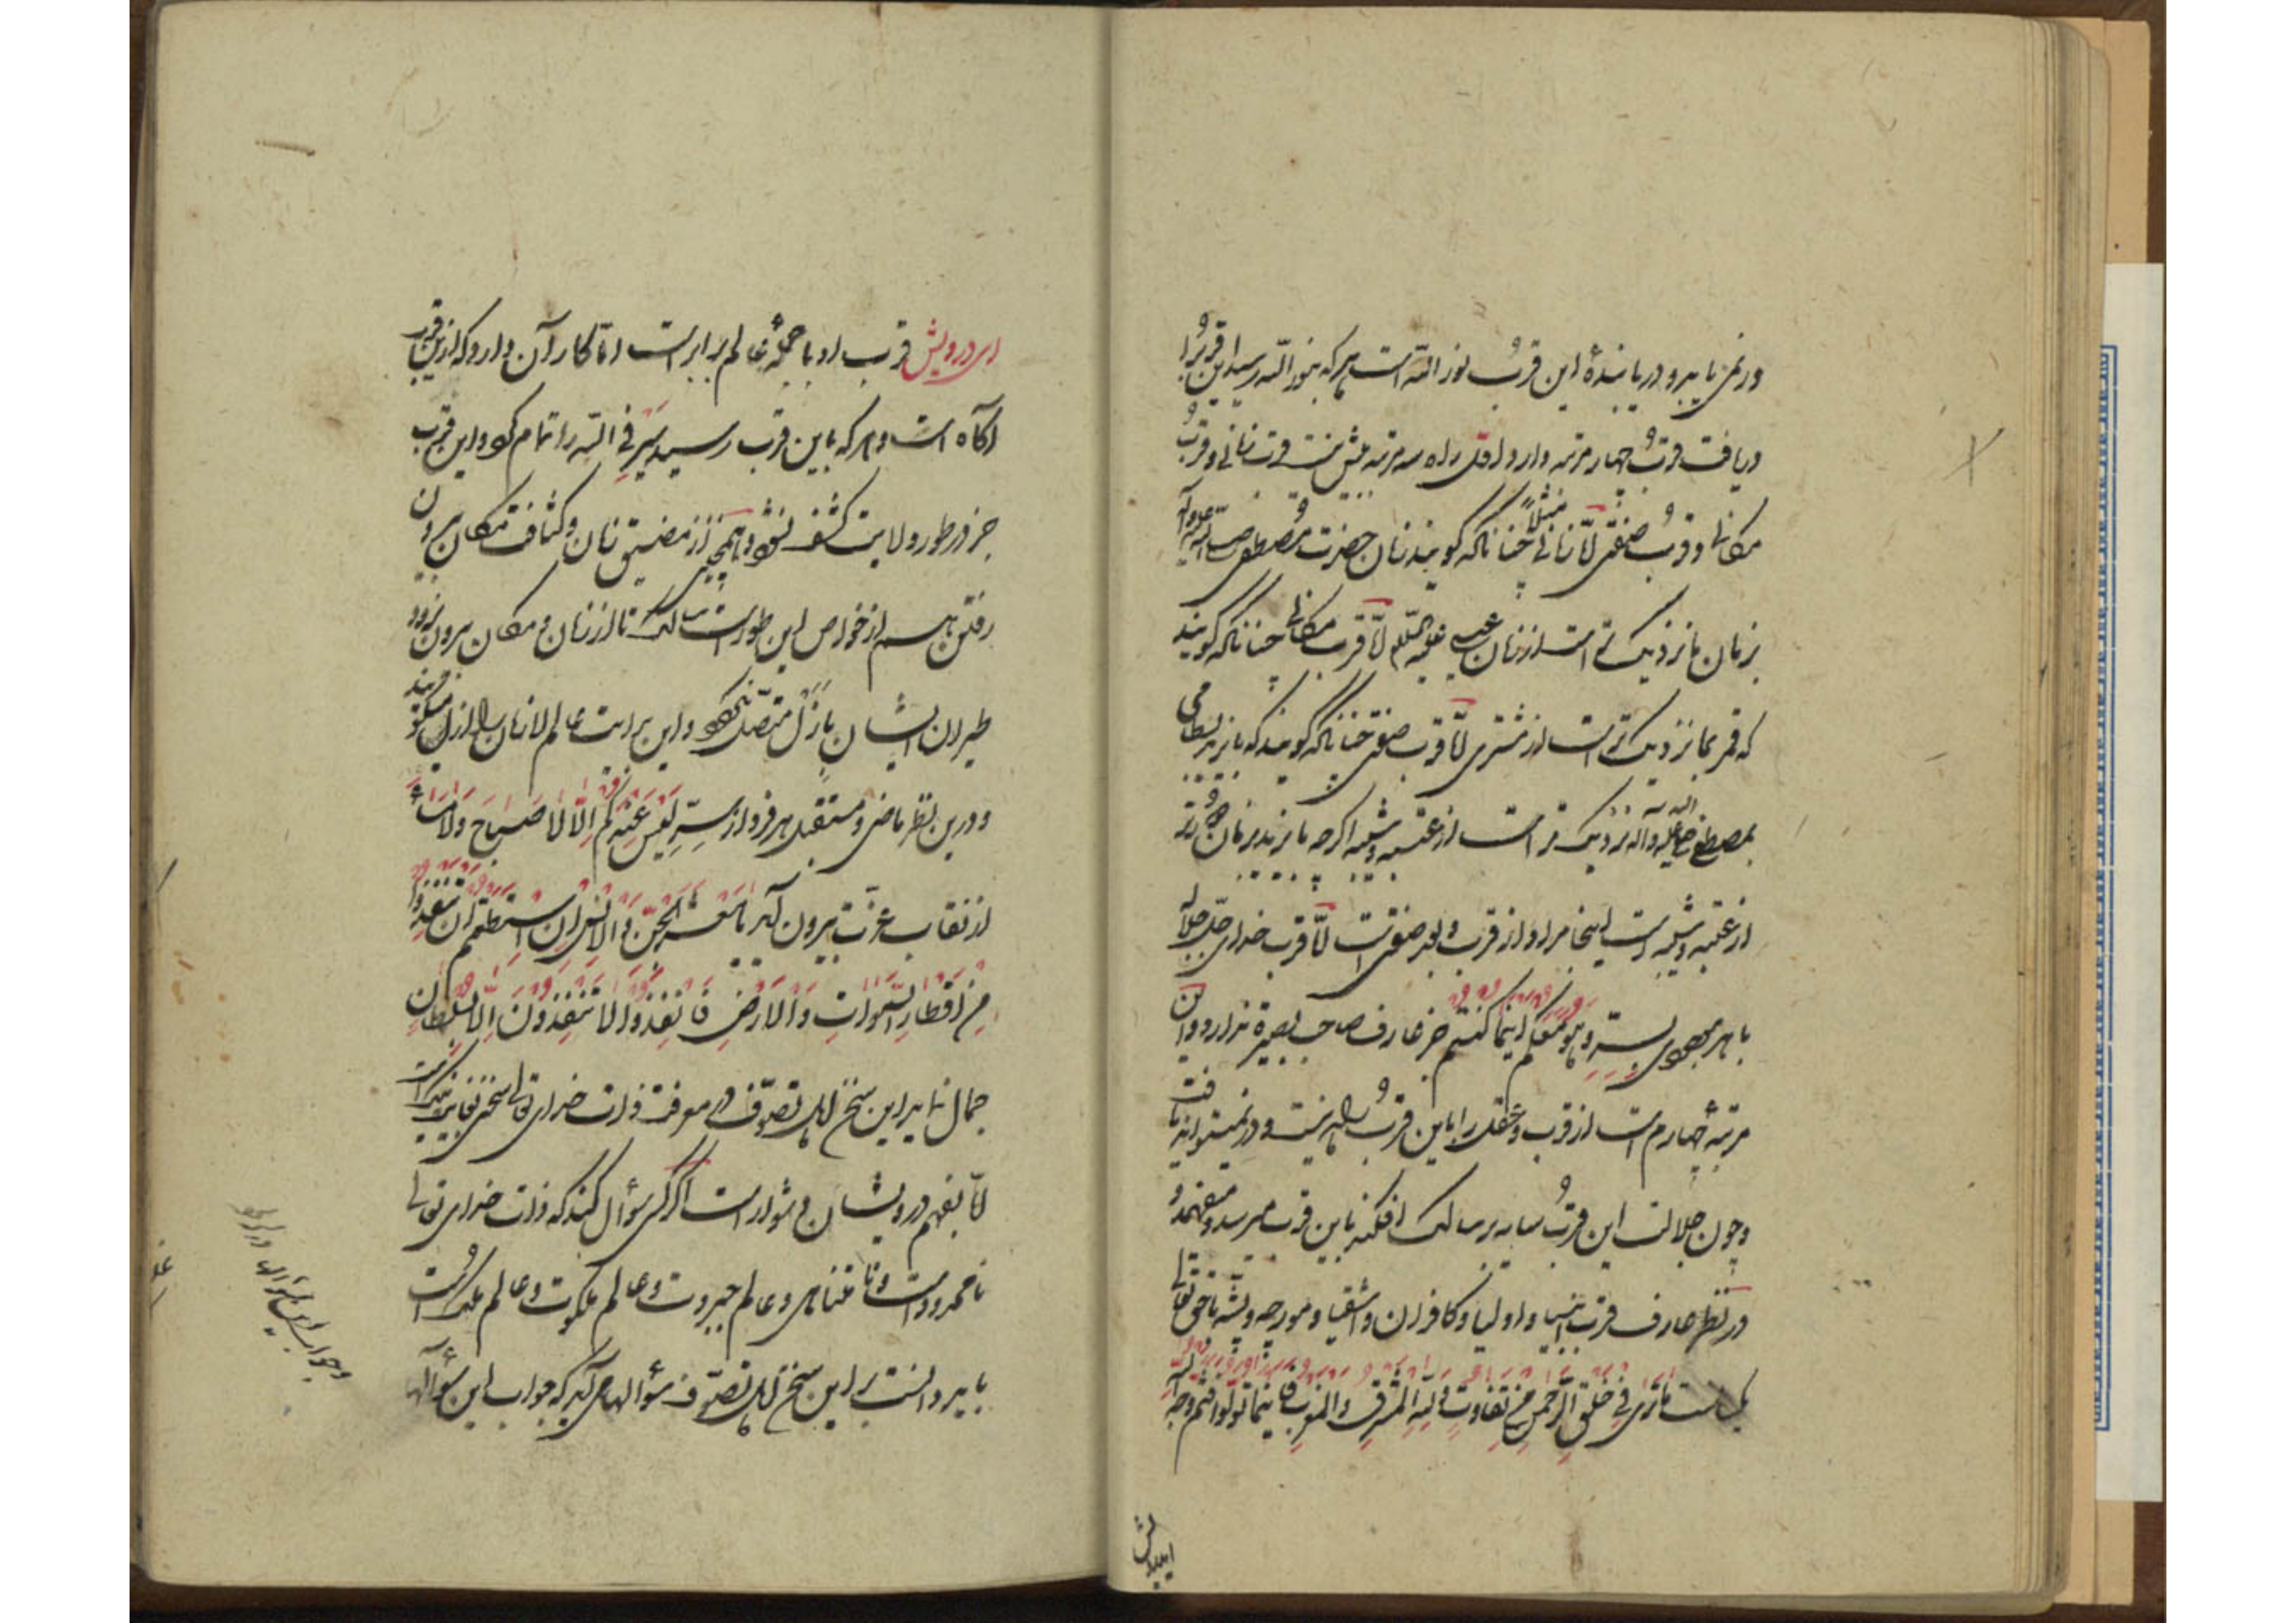 ورنمی‌یابد و دریابندهٔ این قرب نور الله است هر که بنور الله رسید این قرب را
دریافت قرب چهار مرتبه دارد اول راه سه مرتبه بیش نیست قرب زمانی و قرب
مکانی و قرب صفتی امّا زمانی مثلاً چنانکه گویند زمان حضرت مصطفی صلی الله علیه وآله
بزمان ما نزدیک‌تر است از زمان عیسی علیه السلام امّا قرب مکانی چنانکه گویند
که قمر بما نزدیک‌تر است از مشتری امّا قرب صفتی چنانکه گویند که بایزید بسطامی
بمصطفی صلی الله علیه وآله نزدیک تر است از عتبه و شیبه اگرچه بایزید بزمان دورتر
از عتبه و شیبه است اینجا مراد از قرب و بعد صفتی است امّا قرب خدای جلّ جلاله
با هر موجودی بسرّ وهو معکم اینما کنتم جز عارف صاحب بصیرة نداند و این
مرتبهٔ چهارم است از قرب و عقل را باین قرب راه نیست و در نمیتواند یافت
و چون جلالت این قرب سایه بر سالک افکند باین قرب میرسد و میفهمد و
در نظر عارف قرب انبیا و اولیا و کافران و اشقیا و مورچه و پشه با حق تعالی
یکی است ما تری فی خلق الرحمن من تفاوت ولله المشرق والمغرب فاینما تولوا فثم وجه الله
ای درویش
ای درویش قرب او با جملهٔ عالم برابر است امّا کار آن دارد که ازین قرب
آگاه است و هر که باین قرب رسید سیر فی الله را تمام کرد و این قرب
جز در طور ولایت کشف نشود و همچنین از مضیق زمان و کثافت مکان بیرون
رفتن هم از خواص این طور است سالک تا از زمان و مکان بیرون نرود
طیران ایشان بازل متصل نگردد و این بدایت عالم لازمان را ازل میگویند
و درین نظر ماضی و مستقبل برفرد از سرّ لیس عند ربکم الا لا صباح ولا مساء
از نقاب عزّت بیرون آید یا معشر الجن والانس ان استطعتم ان تنفذوا
من اقطار السموات والارض فانفذوا لا تنفذون الا بسلطان
جمال نماید این سخن اهل تصوّف در معرفت ذات خدای تعالی سخنی بغایت نیک است
امّا بفهم درویشان دشوار است اگر کسی سؤال کند که ذات خدای تعالی
نامحدود است و نامتناهی و عالم جبروت و عالم ملکوت و عالم ملک است
باید دانست بر این سخن اهل تصوّف سؤالها می‌آید که جواب این سؤالها
و جواب این سؤالها